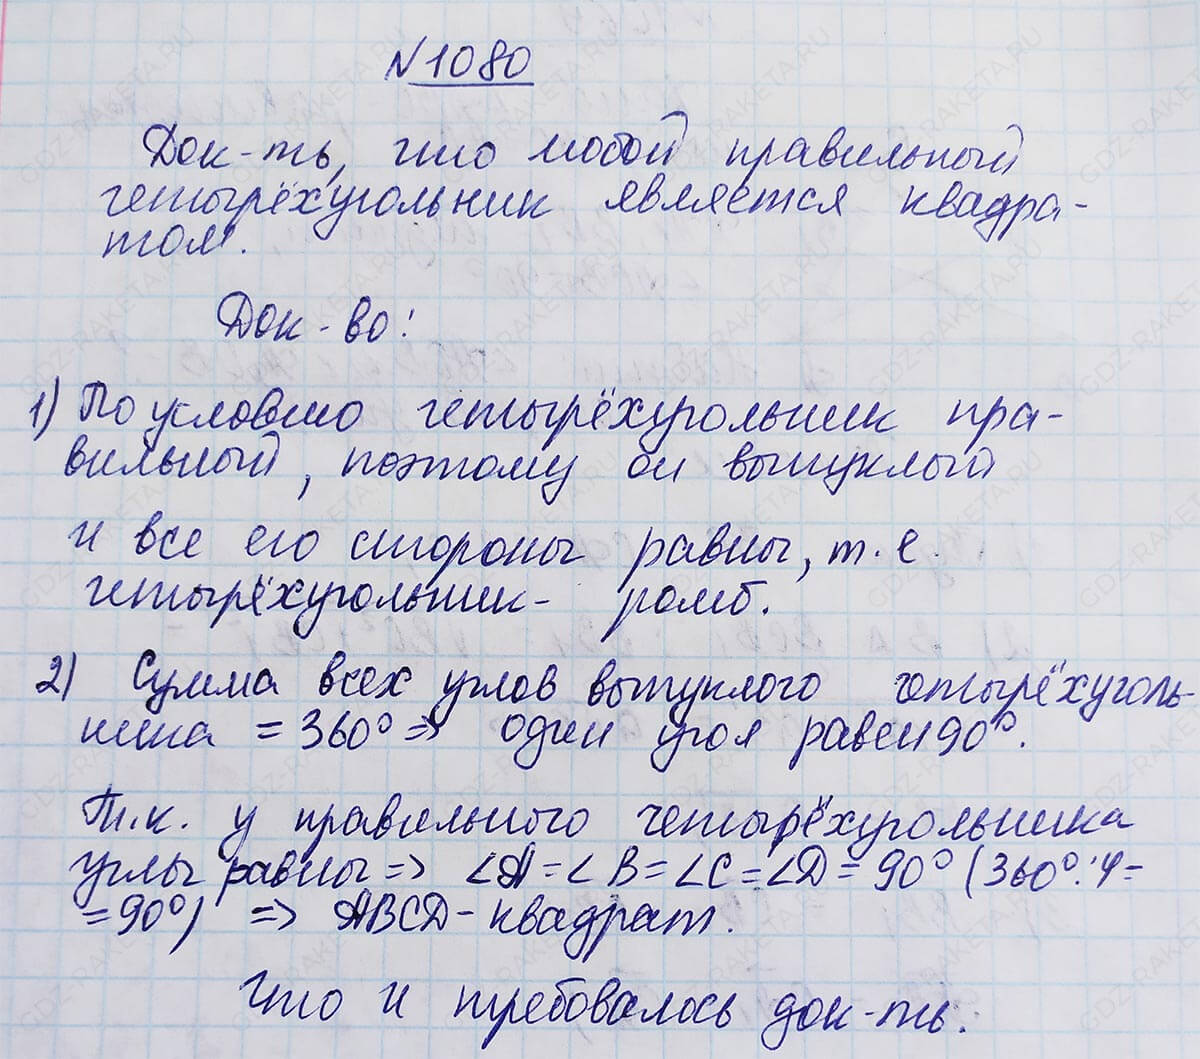 №1080
Док-ть, что любой правильный
четырёхугольник является квадра-
том.
Док-во:
1) По условию четырёхугольник пра-
вильный, поэтому он выпуклый
и все его стороны равны, т.е.
четырёхугольник- ромб.
2) Сумма всех углов выпуклого четырёхуголь-
ника = 360° => один угол равен 90°.
Т.к. у правильного четырёхугольника
углы равны => ∠A=∠B=∠C=∠D=90° (360°:4=
=90°) => ABCD-квадрат.
Что и требовалось док-ть.